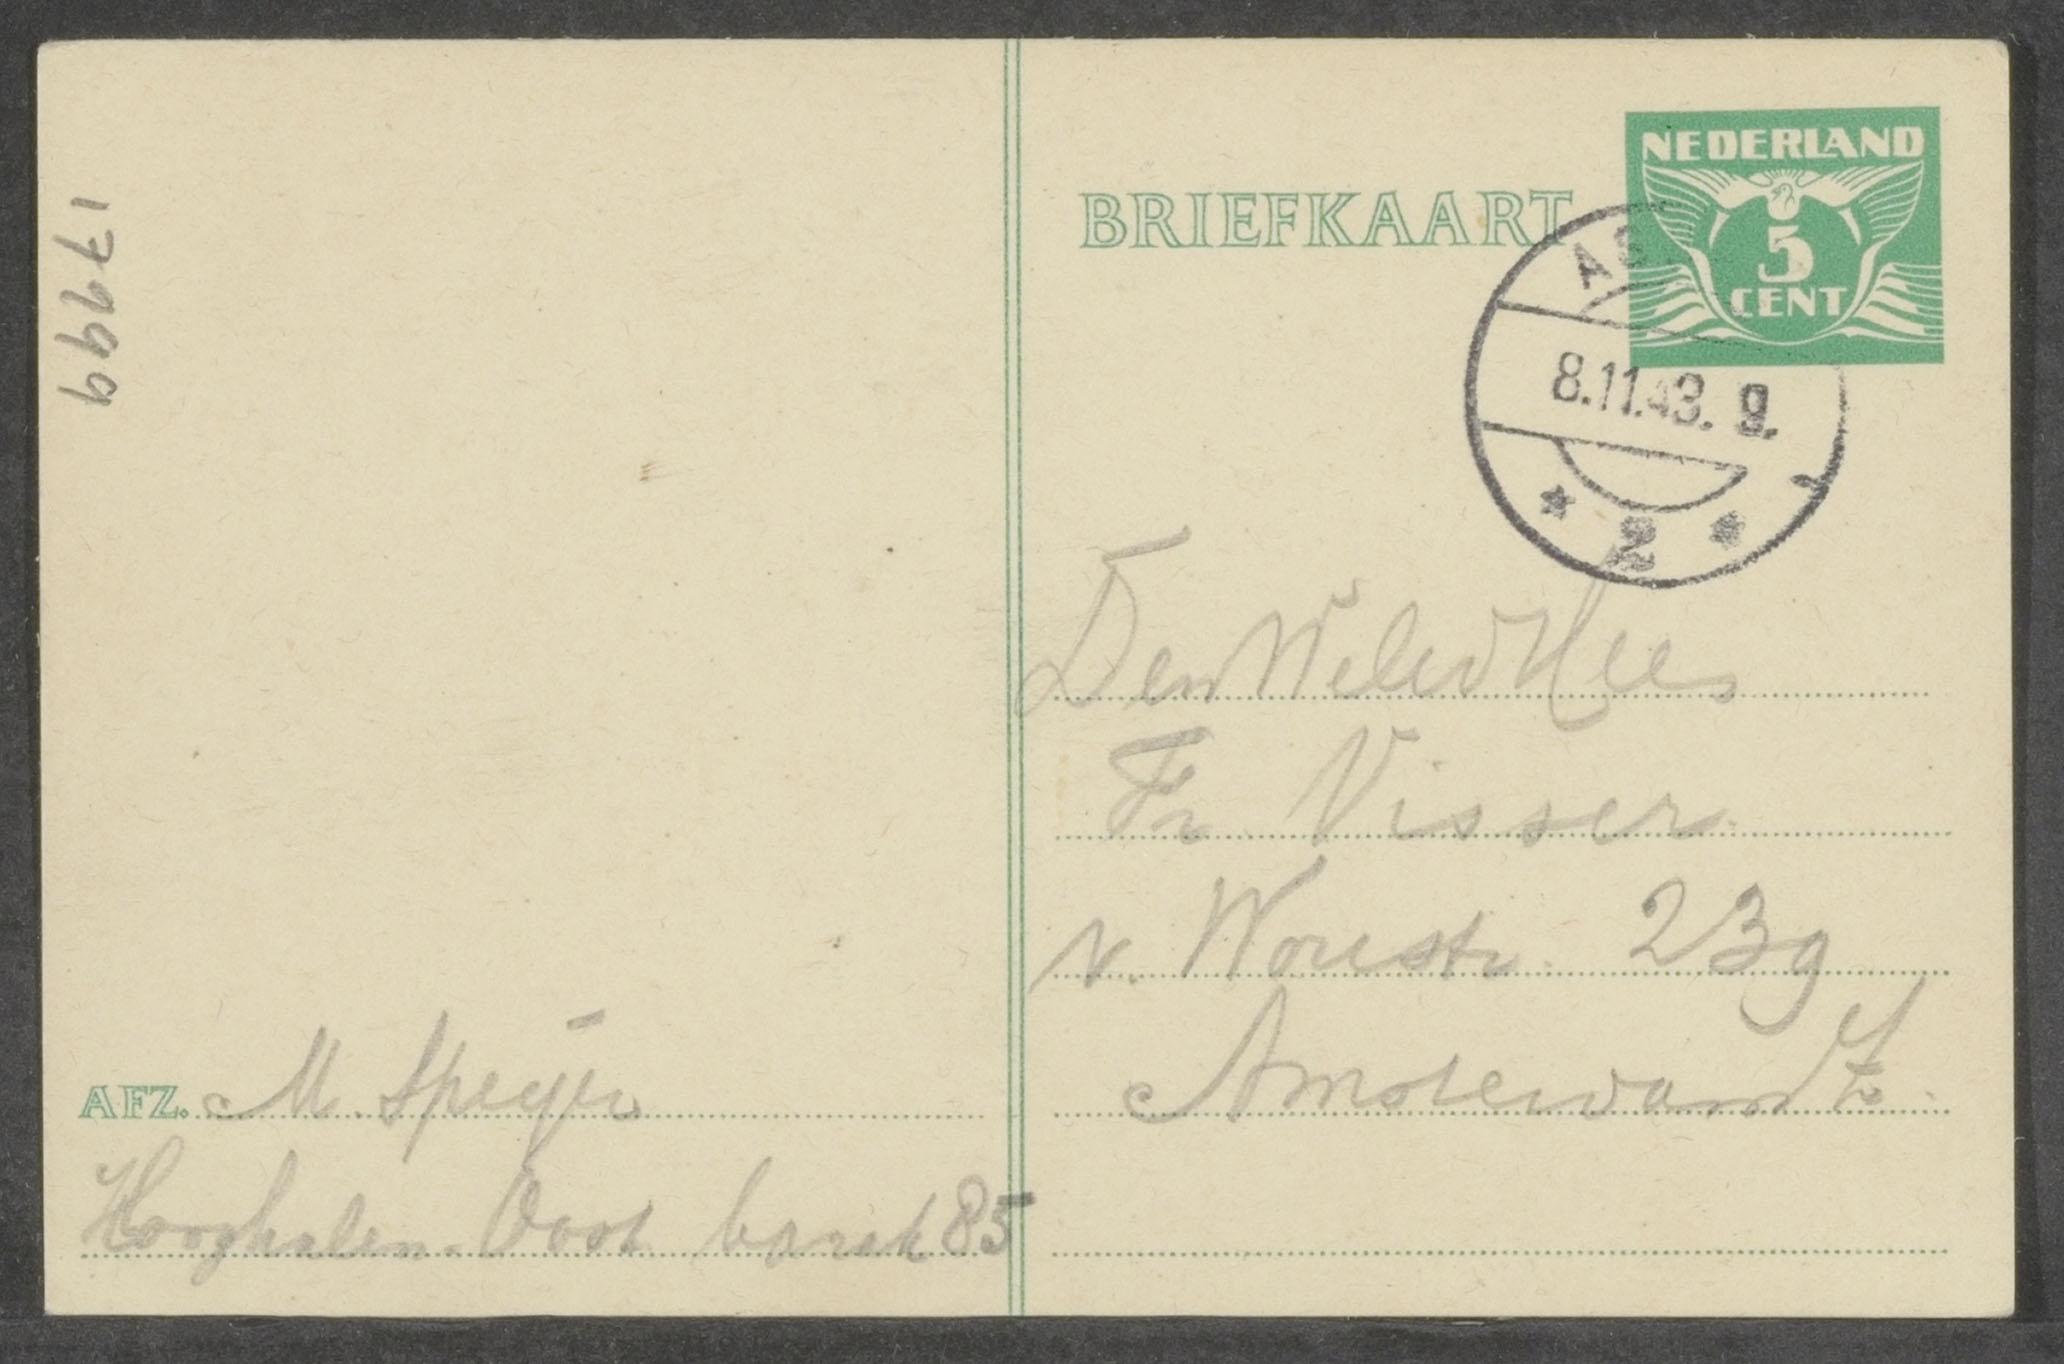 17999
BRIEFKAART
NEDERLAND
5
CENT
AS
8.11.43. 9.
* 2 *
Den WelEd Heer
Fr. Visser
v. Woustr. 239
Amsterdam Z.
AFZ. M. Speijer
Hooghalen-Oost barak 85